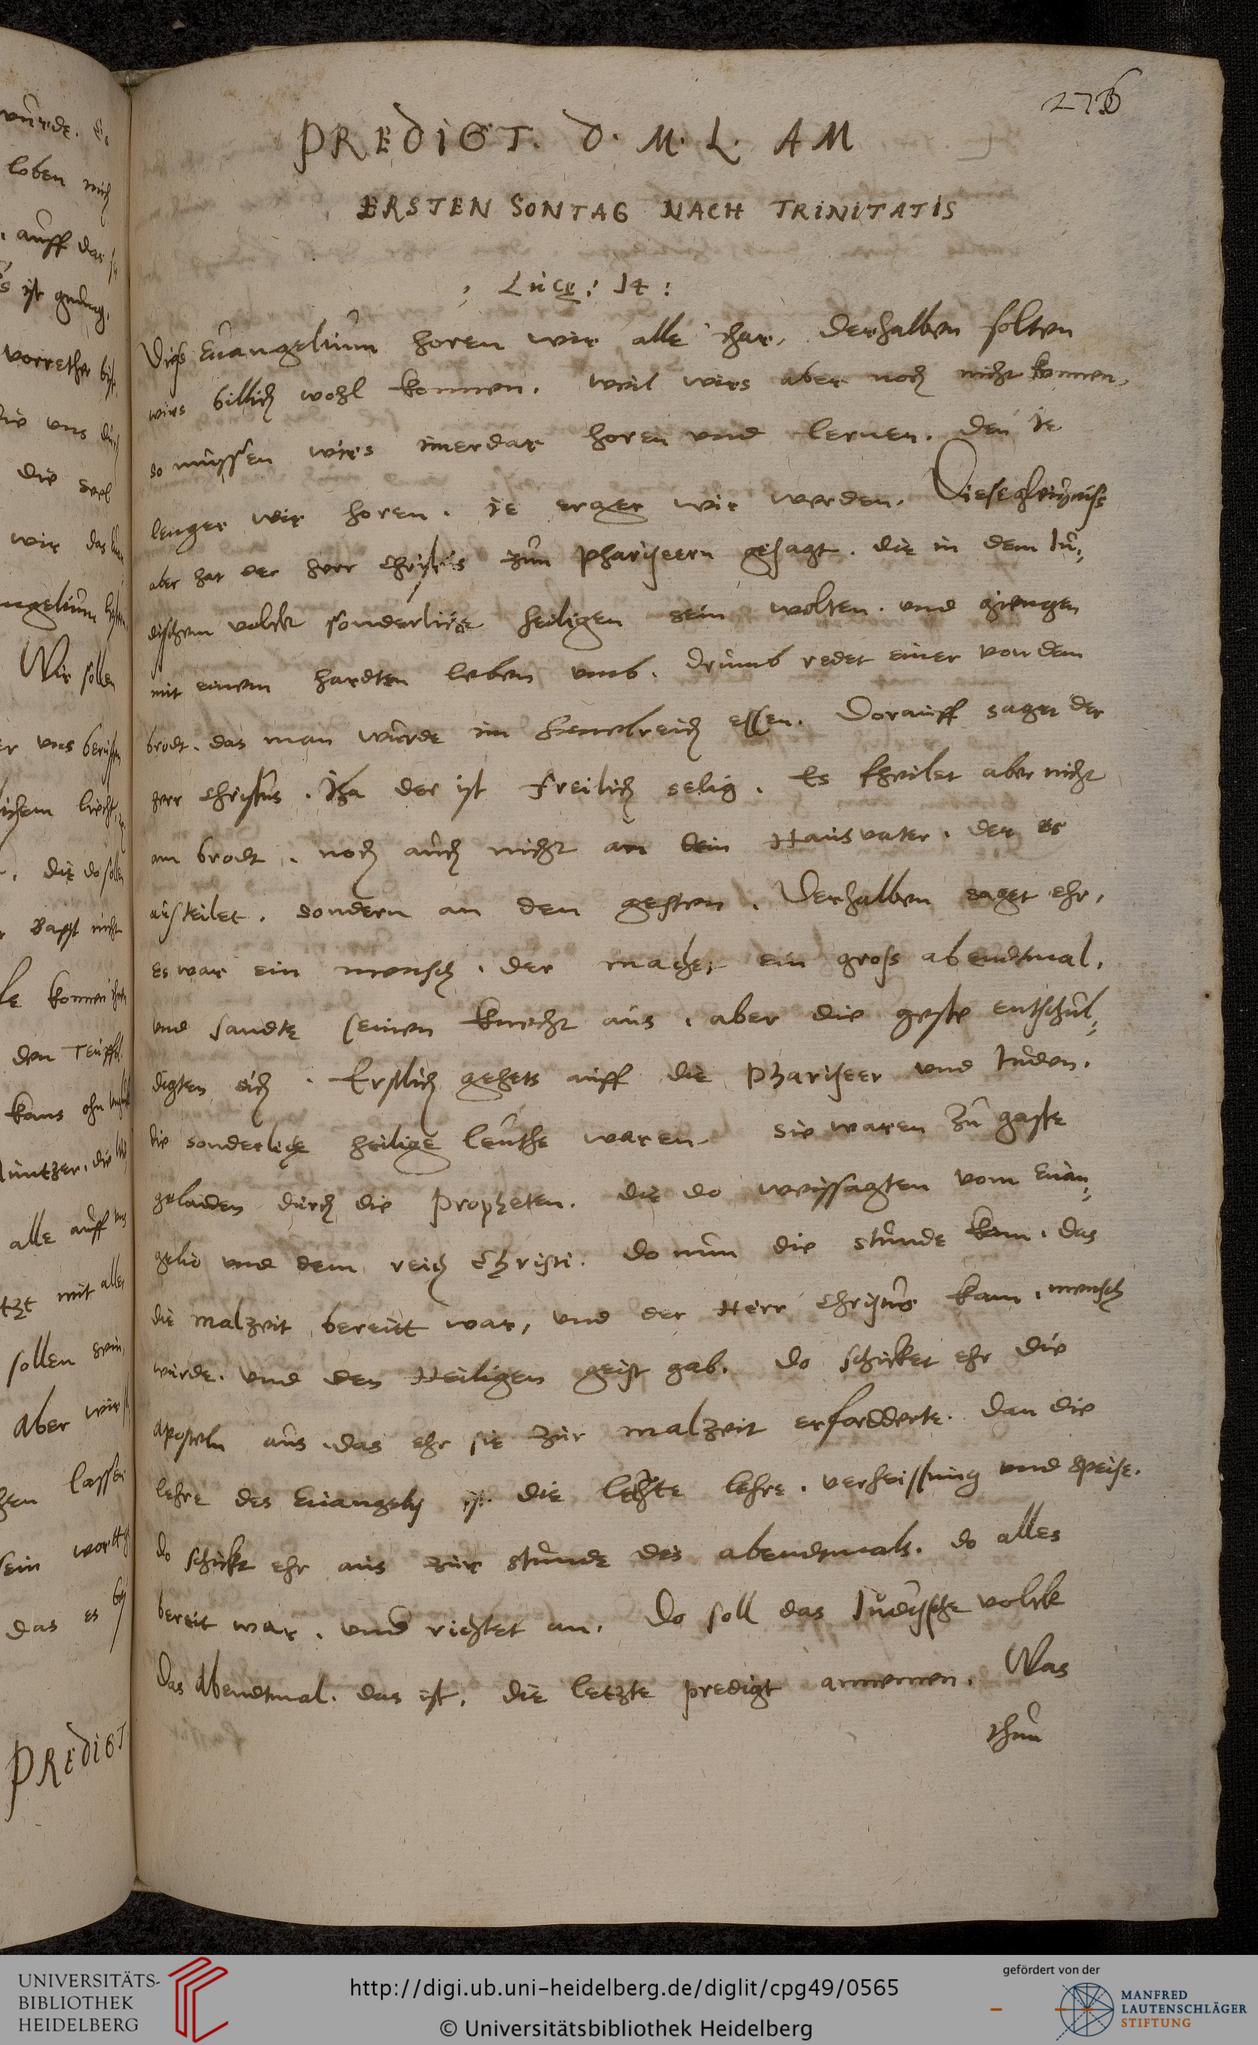 276
PREDIGT. D. M. L. AM
ERSTEN SONTAG NACH TRINITATIS
Lucę: 14:
Diess Euangelium horen wir alle ihar, derhalben solten
wirs billich wohl konnen. weil wirs aber noch nicht konnen,
so mussen wirs imerdar horen vnd lernen. den ie
lenger wir horen. ie erger wir werden. Diese gleichniss
aber hat der herr Christus zun phariseern gesagt. die in dem Iu,
dischem volck sonderliche heiligen sein wolten. vnd giengen
mit einem hardten leben vmb. drumb redet einer von dem
brodt. das man wurde im himelreich essen. Dorauff saget der
herr Christus. Iha der ist freilich selig. Es theilet aber nicht
am brodt. noch auch nicht an dem Hausvater. der es
austeilet. sondern an den gesten. Derhalben saget ehr,
es war ein mensch. der machet ein gross abendtmal,
vnd sandte seinen knecht aus. aber die geste entschul,
digten sich. Erstlich gehets auff die Phariseer vnd Iuden.
die sonderliche heilige leuthe waren. sie waren zu gaste
geladen durch die Propheten. die do weyssagten vom Euan,
gelio vnd dem reich Christi. do nun die stunde kam. das
die malzeit bereitt war, vnd der Herr Christus kam. mensch
wurde. vnd den Heiligen geist gab. do schicket ehr die
Aposteln aus. das ehr sie zur malzeit erfordderte. dan die
lehre des Euangelij ist die letzte lehre. verheissung vnd speise.
do schickt ehr aus zur stunde des abendtmals. do alles
bereit war. vnd richtet an. do soll das Iudische volck
das Abendtmal. das ist, die letzte predigt annemen. Was
thun
PREDIGT
UNIVERSITÄTS-
BIBLIOTHEK
HEIDELBERG
http://digi.ub.uni-heidelberg.de/diglit/cpg49/0565
© Universitätsbibliothek Heidelberg
gefördert von der
MANFRED
LAUTENSCHLÄGER
STIFTUNG